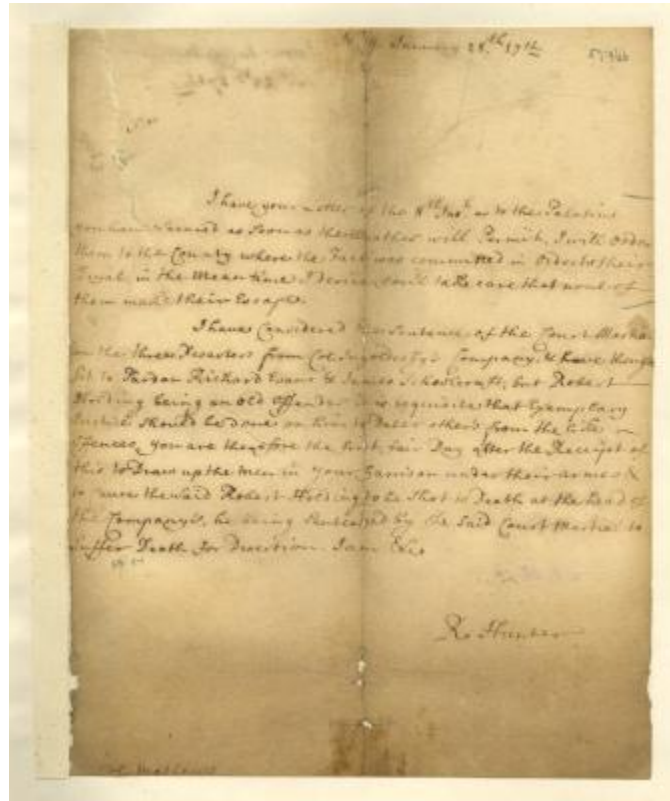 January 28th 171½
I have your letter of the 8th Inst. as to the Palatins
you have Secured as Soon as the Weather will Permitt, I will Order
them to the County where the Fact was committed in Order to their
Tryal, in the Meantime I desire you'l take care that none of
them make their Escape.
I have Considered the Sentence of the Court Martial
on the three Desarters from Col. Ingoldesby's Company, & have thought
fit to Pardon Richard Evans & James Schoolcraft, but Robert
Holding being an old Offender it is requisite that Exemplary
Justice should be done on him to Deter others from the like
Offences, you are therefore the first fair Day after the Receipt of
this to Draw up the Men in your Garrison under their armes &
to cause the said Robert Holding to be Shot to Death at the head of
the Companys, he being Sentenced by the Said Court Martial to
Suffer Death for Desertion. I am &c
Ro Hunter